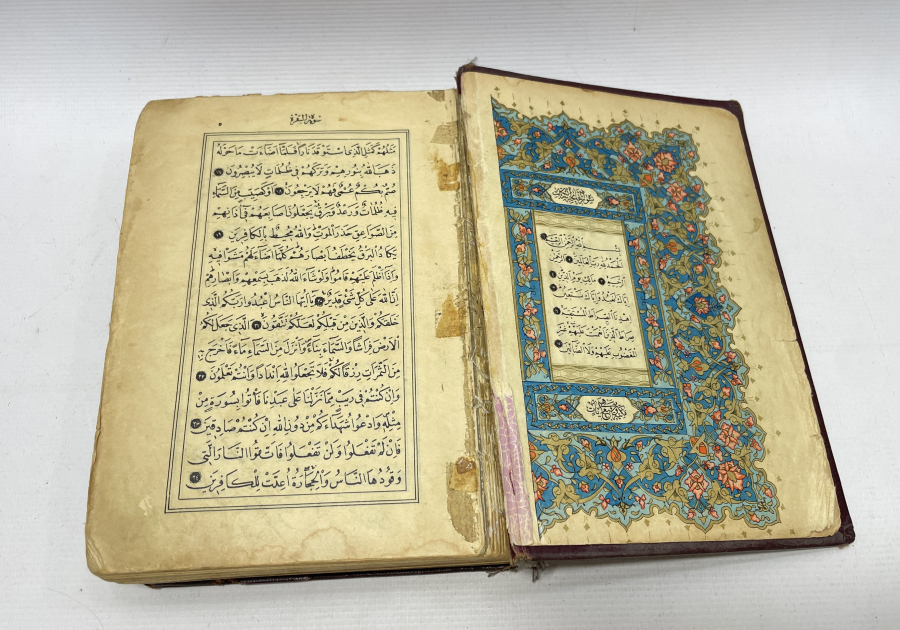 بِسْمِ اللهِ الرَّحْمٰنِ الرَّحِيمِ
اَلْحَمْدُ لِلّٰهِ رَبِّ الْعَالَمِينَ ۝ اَلرَّحْمٰنِ
الرَّحِيمِ ۝ مَالِكِ يَوْمِ الدِّينِ ۝
اِيَّاكَ نَعْبُدُ وَاِيَّاكَ نَسْتَعِينُ ۝
اِهْدِنَا الصِّرَاطَ الْمُسْتَقِيمَ ۝
صِرَاطَ الَّذِينَ اَنْعَمْتَ عَلَيْهِمْ غَيْرِ
الْمَغْضُوبِ عَلَيْهِمْ وَلَا الضَّالِّينَ ۝
سورة البقرة
مَثَلُهُمْ كَمَثَلِ الَّذِى اسْتَوْقَدَ نَارًا فَلَمَّا اَضَاءَتْ مَا حَوْلَهُ
ذَهَبَ اللهُ بِنُورِهِمْ وَتَرَكَهُمْ فِى ظُلُمَاتٍ لَا يُبْصِرُونَ ١٧
صُمٌّ بُكْمٌ عُمْىٌ فَهُمْ لَا يَرْجِعُونَ ١٨ اَوْ كَصَيِّبٍ مِنَ السَّمَاءِ
فِيهِ ظُلُمَاتٌ وَرَعْدٌ وَبَرْقٌ يَجْعَلُونَ اَصَابِعَهُمْ فِى اٰذَانِهِمْ
مِنَ الصَّوَاعِقِ حَذَرَ الْمَوْتِ وَاللهُ مُحِيطٌ بِالْكَافِرِينَ ١٩
يَكَادُ الْبَرْقُ يَخْطَفُ اَبْصَارَهُمْ كُلَّمَا اَضَاءَ لَهُمْ مَشَوْا فِيهِ
وَاِذَا اَظْلَمَ عَلَيْهِمْ قَامُوا وَلَوْ شَاءَ اللهُ لَذَهَبَ بِسَمْعِهِمْ وَاَبْصَارِهِمْ
اِنَّ اللهَ عَلٰى كُلِّ شَىْءٍ قَدِيرٌ ٢٠ يَا اَيُّهَا النَّاسُ اعْبُدُوا رَبَّكُمُ الَّذِى
خَلَقَكُمْ وَالَّذِينَ مِنْ قَبْلِكُمْ لَعَلَّكُمْ تَتَّقُونَ ٢١ اَلَّذِى جَعَلَ لَكُمُ
الْاَرْضَ فِرَاشًا وَالسَّمَاءَ بِنَاءً وَاَنْزَلَ مِنَ السَّمَاءِ مَاءً فَاَخْرَجَ بِهِ
مِنَ الثَّمَرَاتِ رِزْقًا لَكُمْ فَلَا تَجْعَلُوا لِلّٰهِ اَنْدَادًا وَاَنْتُمْ تَعْلَمُونَ ٢٢
وَاِنْ كُنْتُمْ فِى رَيْبٍ مِمَّا نَزَّلْنَا عَلٰى عَبْدِنَا فَاْتُوا بِسُورَةٍ مِنْ
مِثْلِهِ وَادْعُوا شُهَدَاءَكُمْ مِنْ دُونِ اللهِ اِنْ كُنْتُمْ صَادِقِينَ ٢٣
فَاِنْ لَمْ تَفْعَلُوا وَلَنْ تَفْعَلُوا فَاتَّقُوا النَّارَ الَّتِى
وَقُودُهَا النَّاسُ وَالْحِجَارَةُ اُعِدَّتْ لِلْكَافِرِينَ ٢٤